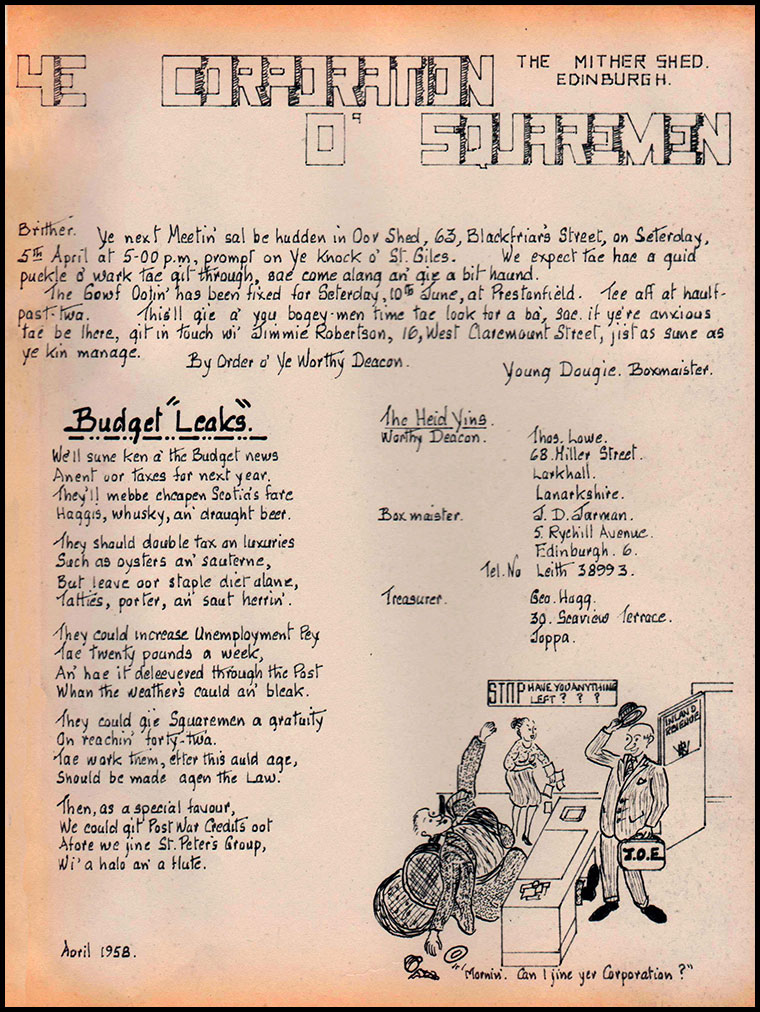 YE CORPORATION
O' SQUAREMEN
THE MITHER SHED.
EDINBURGH.
Brither. Ye next Meetin' sal be hudden in Oor Shed, 63, Blackfriar's Street, on Seterday,
5th April at 5-00 p.m, prompt on Ye Knock o' St. Giles. We expect tae hae a guid
puckle o' wark tae git through, sae come alang an' gie a bit haund.
The Gowf Ootin' has been fixed for Seterday, 10th June, at Prestonfield. Tee aff at haulf-
past-twa. This'll gie a' you bogey-men time tae look for a ba', sae. if ye're anxious
tae be there, git in touch wi' Jimmie Robertson, 16, West Claremount Street, jist as sune as
ye kin manage.
By Order o' Ye Worthy Deacon.
Young Dougie. Boxmaister.
Budget "Leaks".
We'll sune ken a' the Budget news
Anent oor taxes for next year.
They'll mebbe cheapen Scotia's fare
Haggis, whusky, an' draught beer.
They should double tax on luxuries
Such as oysters an' sauterne,
But leave oor staple diet alane,
Tatties, porter, an' saut herrin'.
They could increase Unemployment Pey
Tae twenty pounds a week,
An' hae it deleevered through the Post
Whan the weather's cauld an' bleak.
They could gie Squaremen a gratuity
On reachin' forty-twa.
Tae work them, efter this auld age,
Should be made agen the Law.
Then, as a special favour,
We could git Post War Credits oot
Afore we jine St. Peter's Group,
Wi' a halo an' a flute.
April 1958.
The Heid Yins.
Worthy Deacon. Thos. Lowe.
68. Miller Street.
Larkhall.
Lanarkshire.
Box maister. J. D. Jarman.
5. Ryehill Avenue.
Edinburgh. 6.
Tel. No Leith 38993.
Treasurer. Geo. Hogg.
30. Seaview Terrace.
Joppa.
STOP HAVE YOU ANYTHING
LEFT ? ? ?
INLAND
REVENUE
J.O.E
"Mornin'. Can I jine yer Corporation ?"